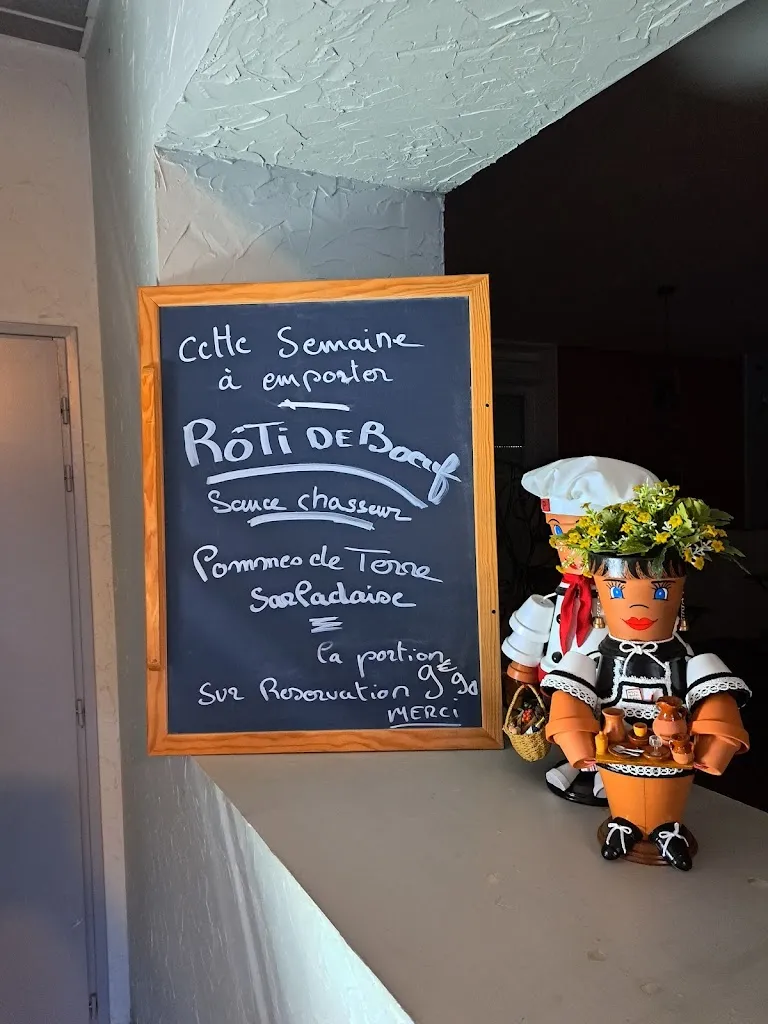 Cette Semaine
à emporter
RôTi DE Boeuf
Sauce chasseur
Pommes de Terre
Sarladaise
la portion
Sur Reservation 9€90
MERCI